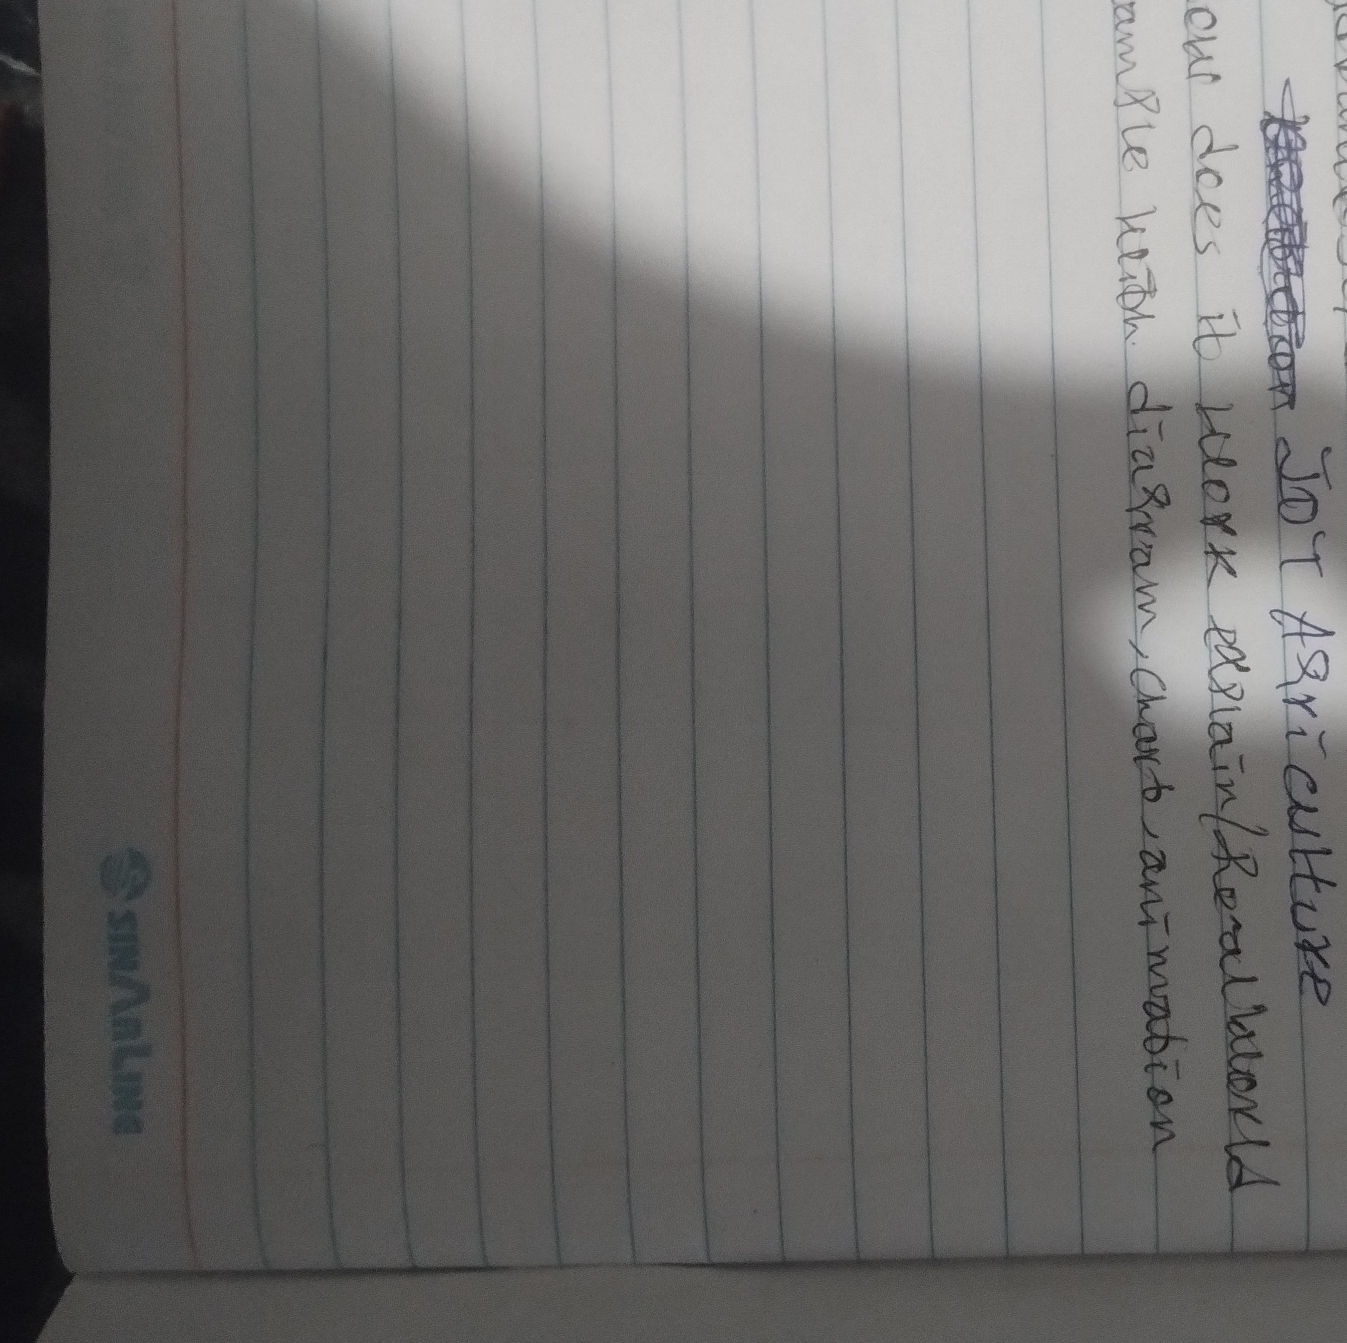 IOT Agriculture
How does it work explain/Real world
example with diagram, chart, animation
SINARLINE